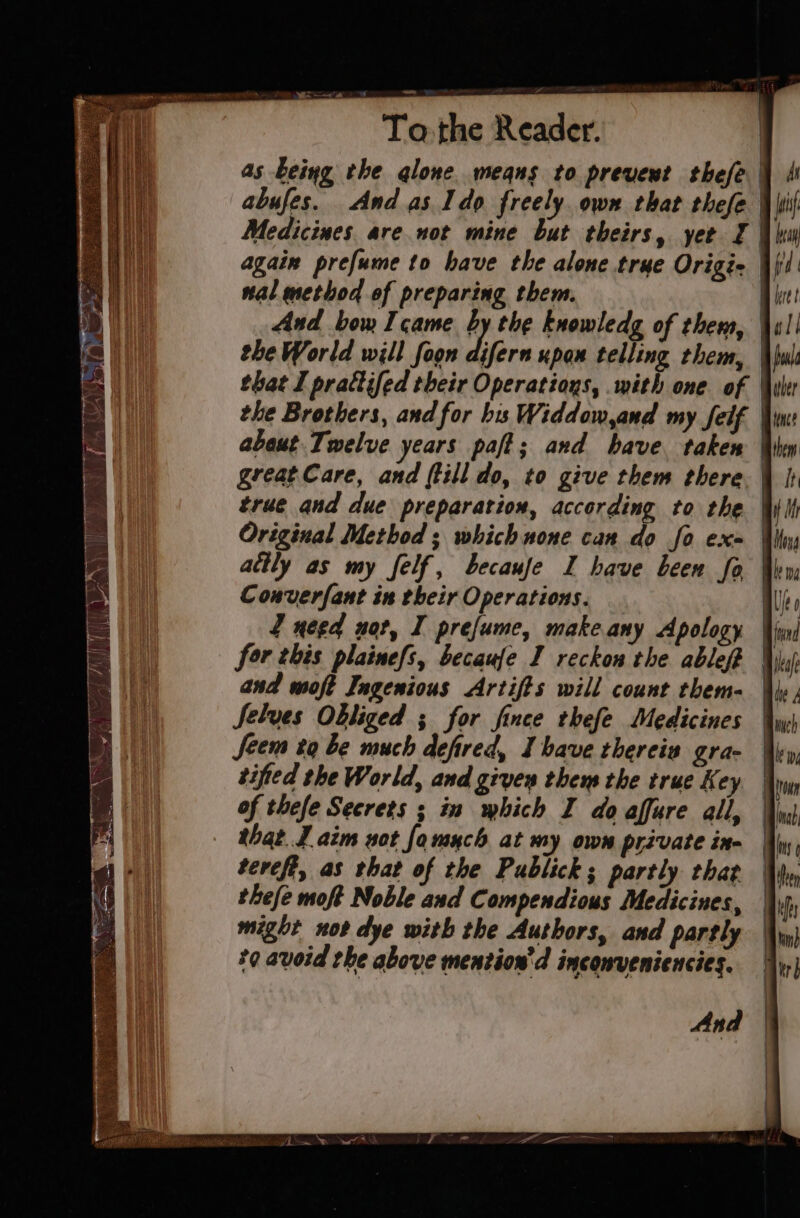 To the Reader.
as being the alone means to prevent theſe
abuſes. And as I do freely own that theſe
Medicines are not mine but theirs, yet I
again preſume to have the alone true Origi-
nal method of preparing them.
And how I came by the knowledg of them,
the World will ſoon diſern upon telling them,
that I practiſed their Operations, with one of
the Brothers, and for his Widdow, and my ſelf
about Twelve years paſt; and have taken
great Care, and ſtill do, to give them there
true and due preparation, according to the
Original Method; which none can do ſo ex-
actly as my ſelf, becauſe I have been ſo
Converſant in their Operations.
I need not, I preſume, make any Apology
for this plaineſs, becauſe I reckon the ableſt
and moſt Ingenious Artiſts will count them-
ſelves Obliged; for ſince theſe Medicines
ſeem to be much deſired, I have therein gra-
tified the World, and given them the true Key
of theſe Secrets; in which I do aſſure all,
that I aim not ſo much at my own private in-
tereſt, as that of the Publick; partly that
theſe moſt Noble and Compendious Medicines,
might not dye with the Authors, and partly
to avoid the above mention'd inconveniencies.
And